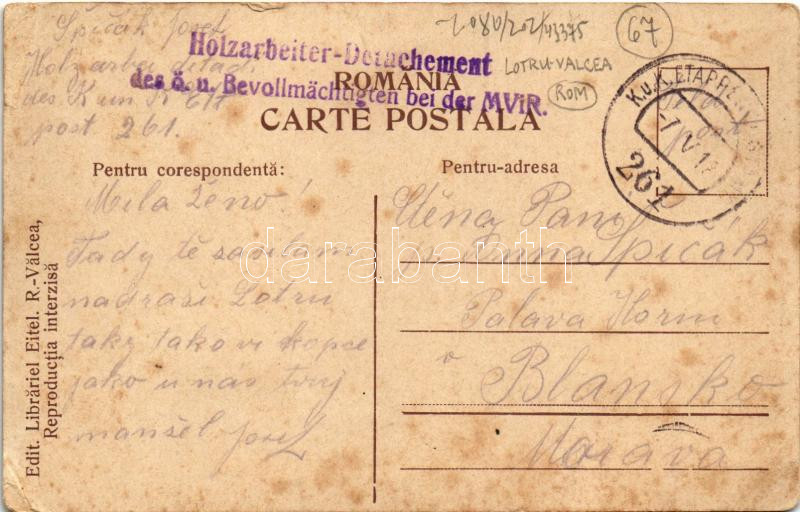 Špičák Josef
Holzarbei detach
des K un K
post. 261.
Holzarbeiter-Detachement
des ö. u. Bevollmächtigten bei der MViR.
2080/202/43375
67
LOTRU-VALCEA
ROM
ROMÂNIA
CARTE POSTALA
K.u.K. ETAPPEN
-7 V 1
261
post
Pentru corespondentă:
Pentru-adresa
Milá Ženo!
Tady tě
nadraží Lotru
taky jakovi kopce
jako u nás tvůj
manžel Josef
Pani
Anna Špičák
Palava Horni
v
Blansko
Morava
Edit. Librăriel Eitel. R.-Vâlcea,
Reproducția interzisă
darabanth